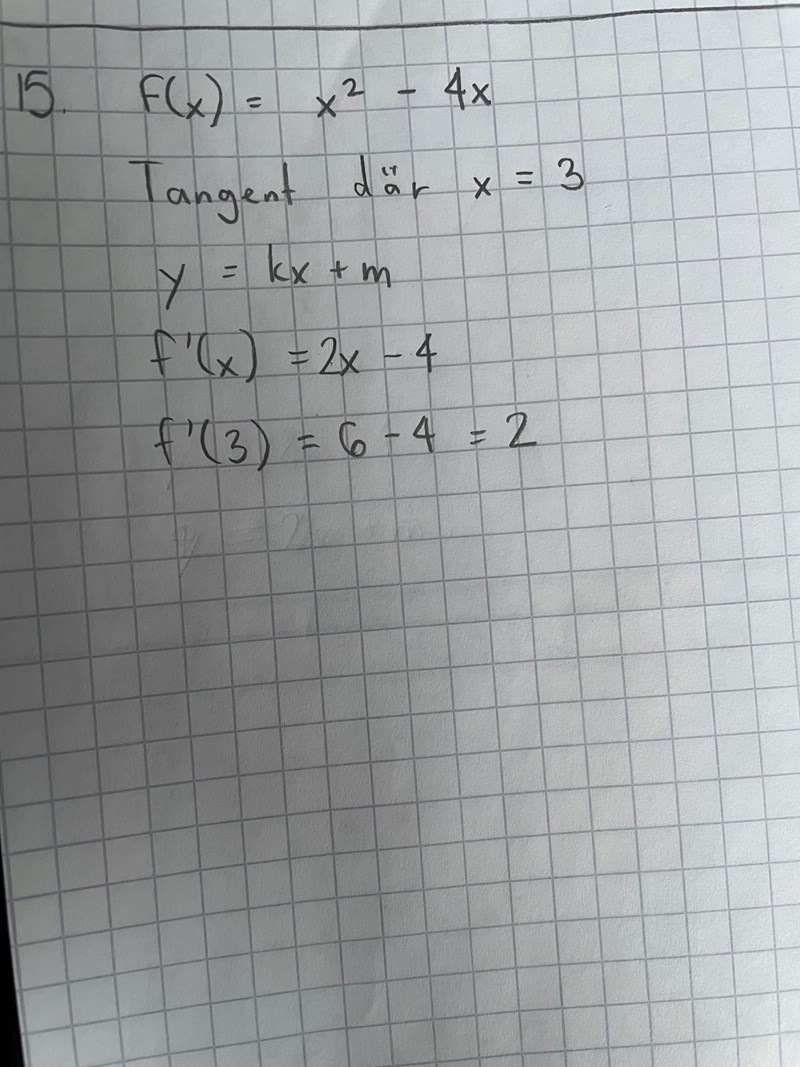 15. f(x) = x² - 4x
Tangent där x = 3
y = kx + m
f'(x) = 2x - 4
f'(3) = 6 - 4 = 2